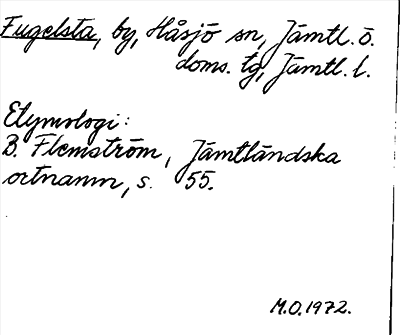 Fugelsta, by, Håsjö sn, Jämtl. ö.
doms. tg, Jämtl. l.
Etymologi:
B. Flemström, Jämtländska
ortnamn, s. 55.
M.O.1972.